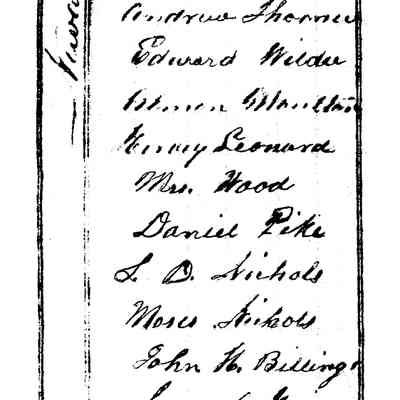 Andrew Thorne
Edward Wilder
Moulton
Henry Leonard
Mrs. Wood
Daniel Pike
L. D. Nichols
Moses Nichols
John H. Billings